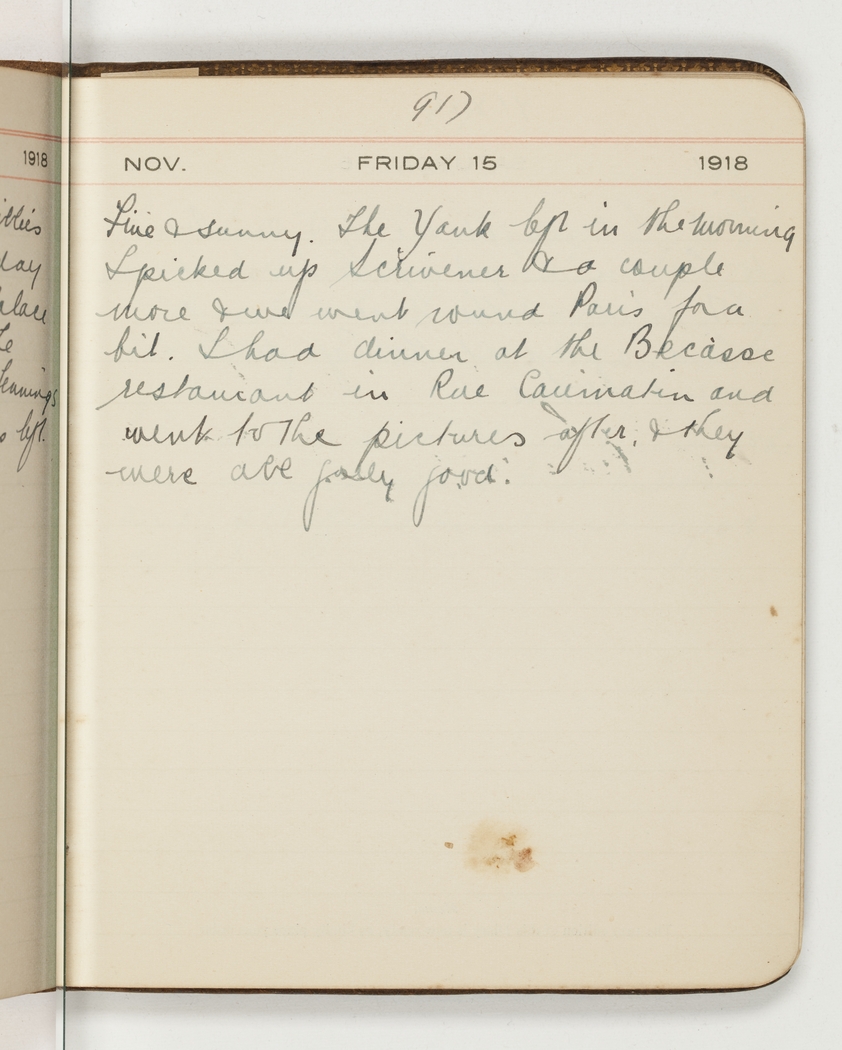 917
1918
NOV. FRIDAY 15 1918
Fine & sunny. The Yank left in the morning
I picked up Scrivener & a couple
more & we went round Paris for a
bit. I had dinner at the Becasse
restaurant in Rue and
went to the pictures after, & they
were good.
day
place
Jennings
left.